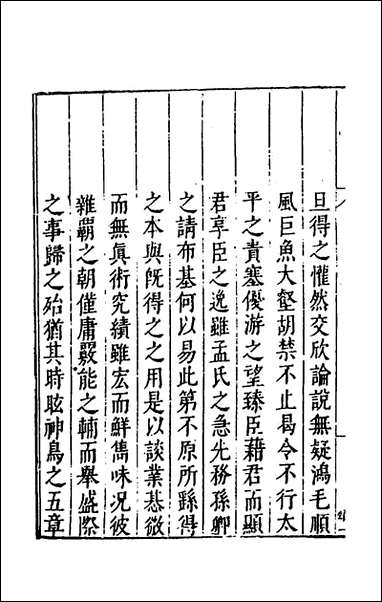 旦得之懽然交欣論說無疑鴻毛順
風巨魚大壑胡禁不止曷令不行太
平之責塞優游之望臻臣藉君而顯
君享臣之逸雖孟氏之急先務孫卿
之請布基何以易此第不原所繇得
之本與旣得之之用是以談業惎微
而無眞術究績雖宏而鮮雋味況彼
雜霸之朝僅庸覈能之輔而舉盛際
之事歸之殆猶其時眩神鳥之五章